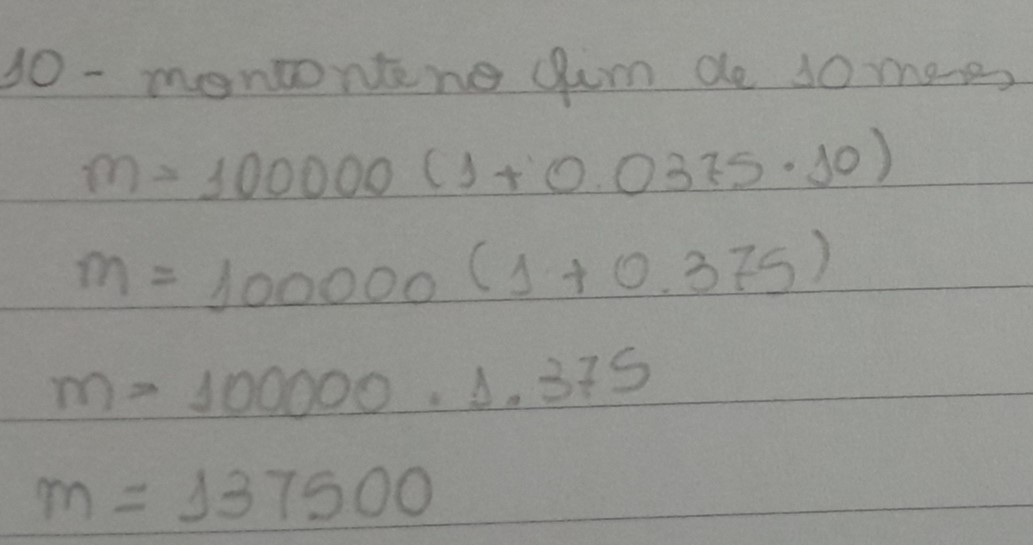 10 - montante no fim de 10 meses
m = 100000 (1 + 0.0375 . 10)
m = 100000 (1 + 0.375)
m = 100000 . 1.375
m = 137500